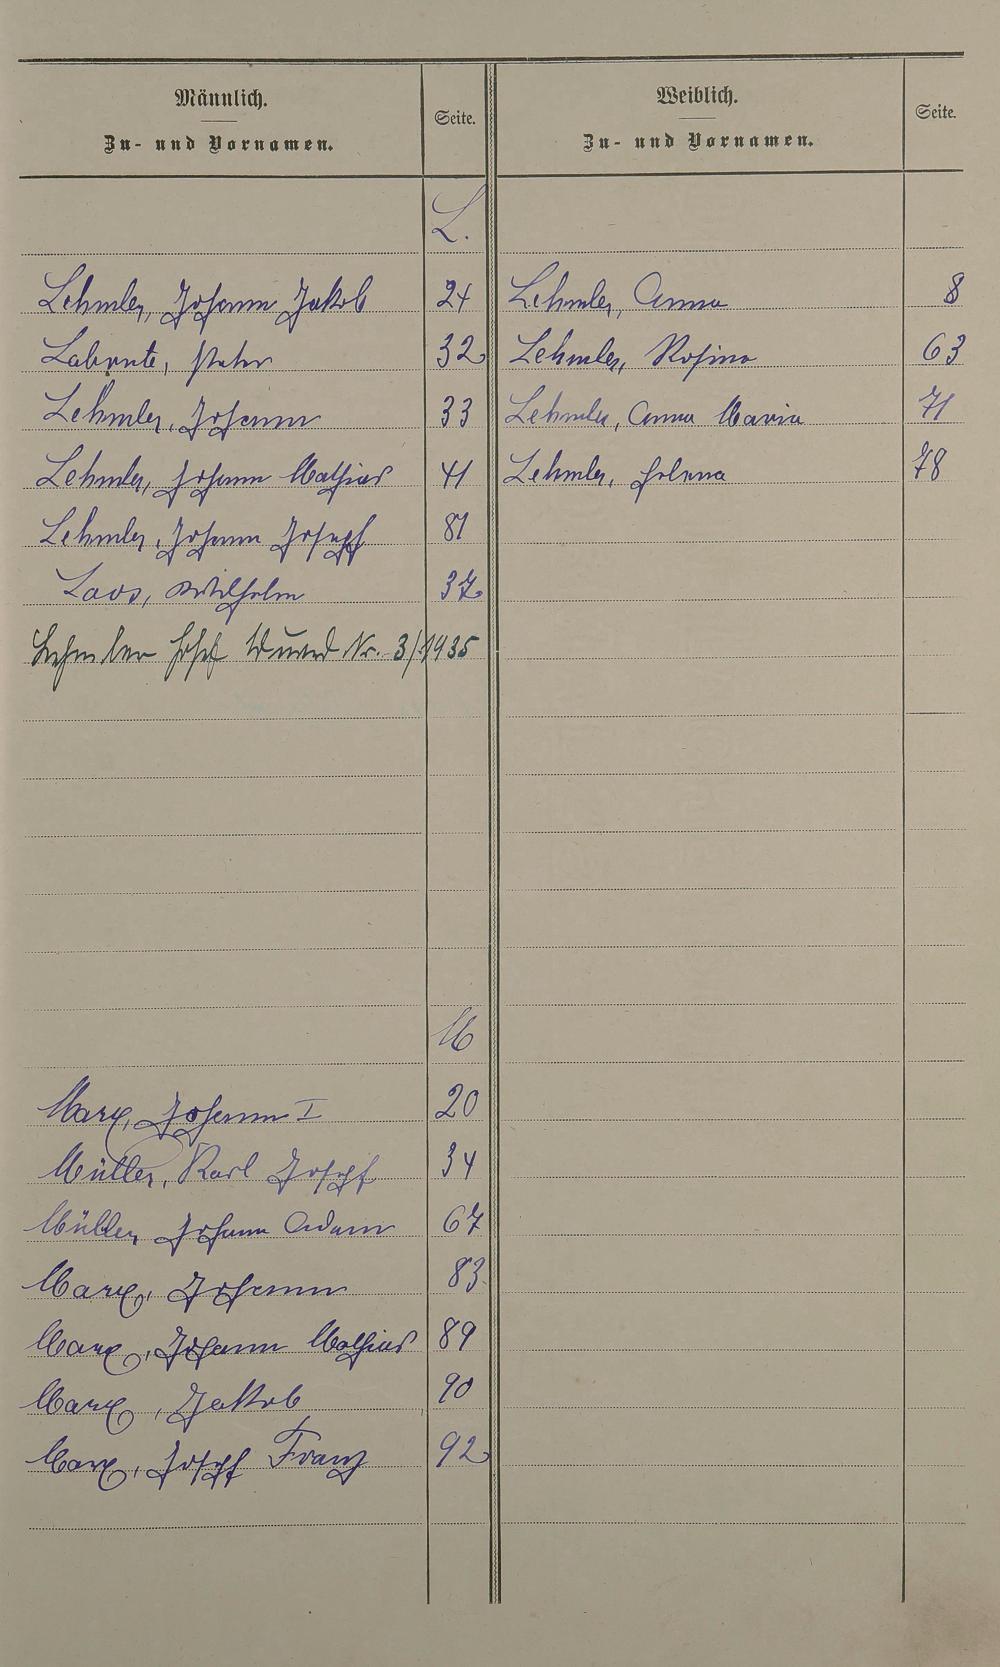 Männlich.
Zu- und Vornamen.
Seite.
Weiblich.
Zu- und Vornamen.
Seite.
L.
Lehmler, Johann Jakob 24 Lehmler, Anna 8
Labonte, Peter 32 Lehmler, Rosina 63
Lehmler, Johann 33 Lehmler, Anna Maria 71
Lehmler, Johann Mathias 41 Lehmler, Helena 78
Lehmler, Johann Joseph 81
Laos, Wilhelm 37
Lehmler Josef Nr. 3/1935
M
Marx, Johann I 20
Müller, Karl Joseph 34
Müller, Johann Adam 67
Marx, Johann 83
Marx, Johann Mathias 89
Marx, Jakob 90
Marx, Joseph Franz 92